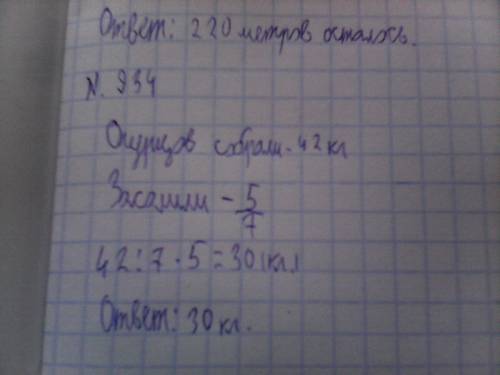 Ответ: 220 метров осталось.
N. 934
Огурцов собрали - 42 кг
Засолили - 5/7
42 : 7 · 5 = 30 (кг)
Ответ: 30 кг.